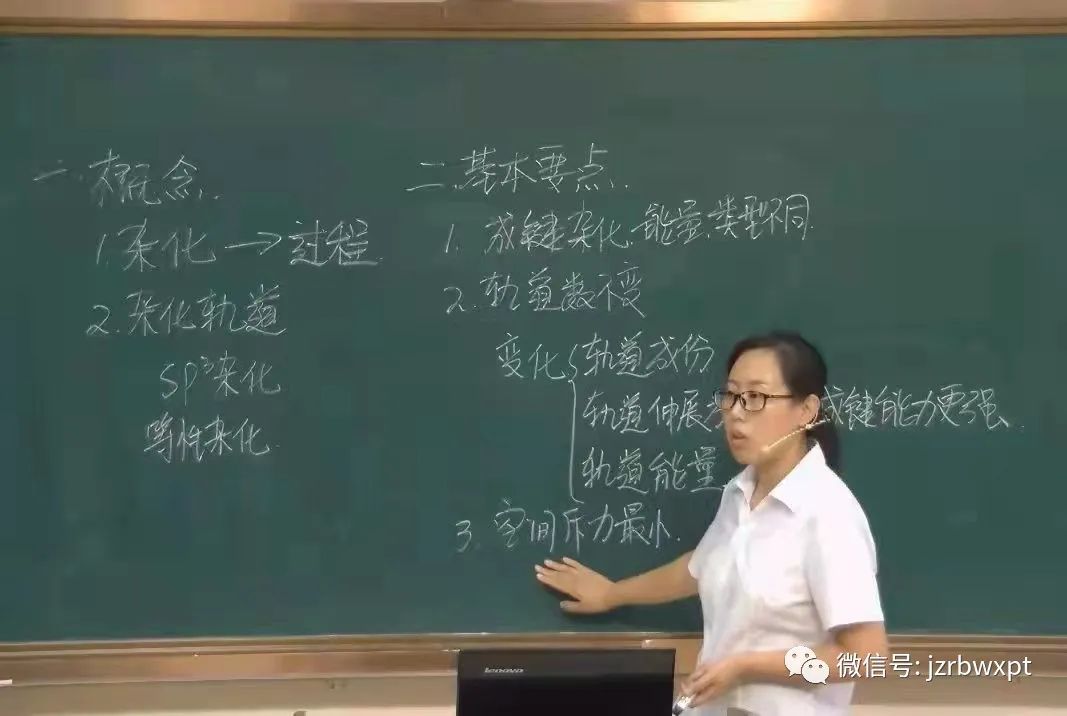 一.概念.
1.杂化→过程.
2.杂化轨道
SP³杂化
等性杂化.
二.基本要点.
1.成键杂化.能量.类型不同.
2.轨道数不变
变化{轨道成份
轨道伸展 成键能力更强.
轨道能量
3.空间斥力最小.
lenovo
微信号: jzrbwxpt